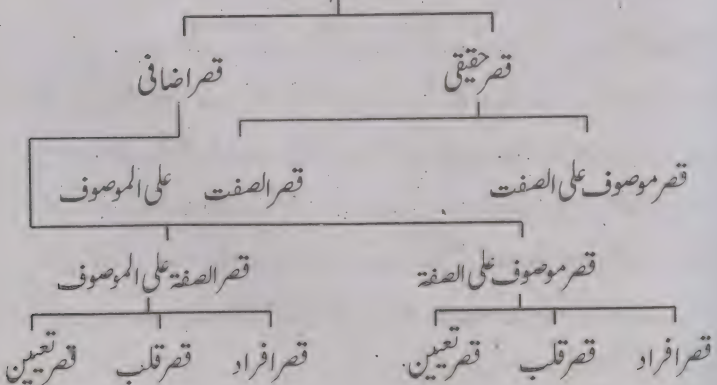 قصر حقیقی قصر اضافی
قصر موصوف علی الصفت قصر الصفت علی الموصوف
قصر موصوف علی الصفۃ قصر الصفۃ علی الموصوف
قصر افراد قصر قلب قصر تعیین قصر افراد قصر قلب قصر تعیین